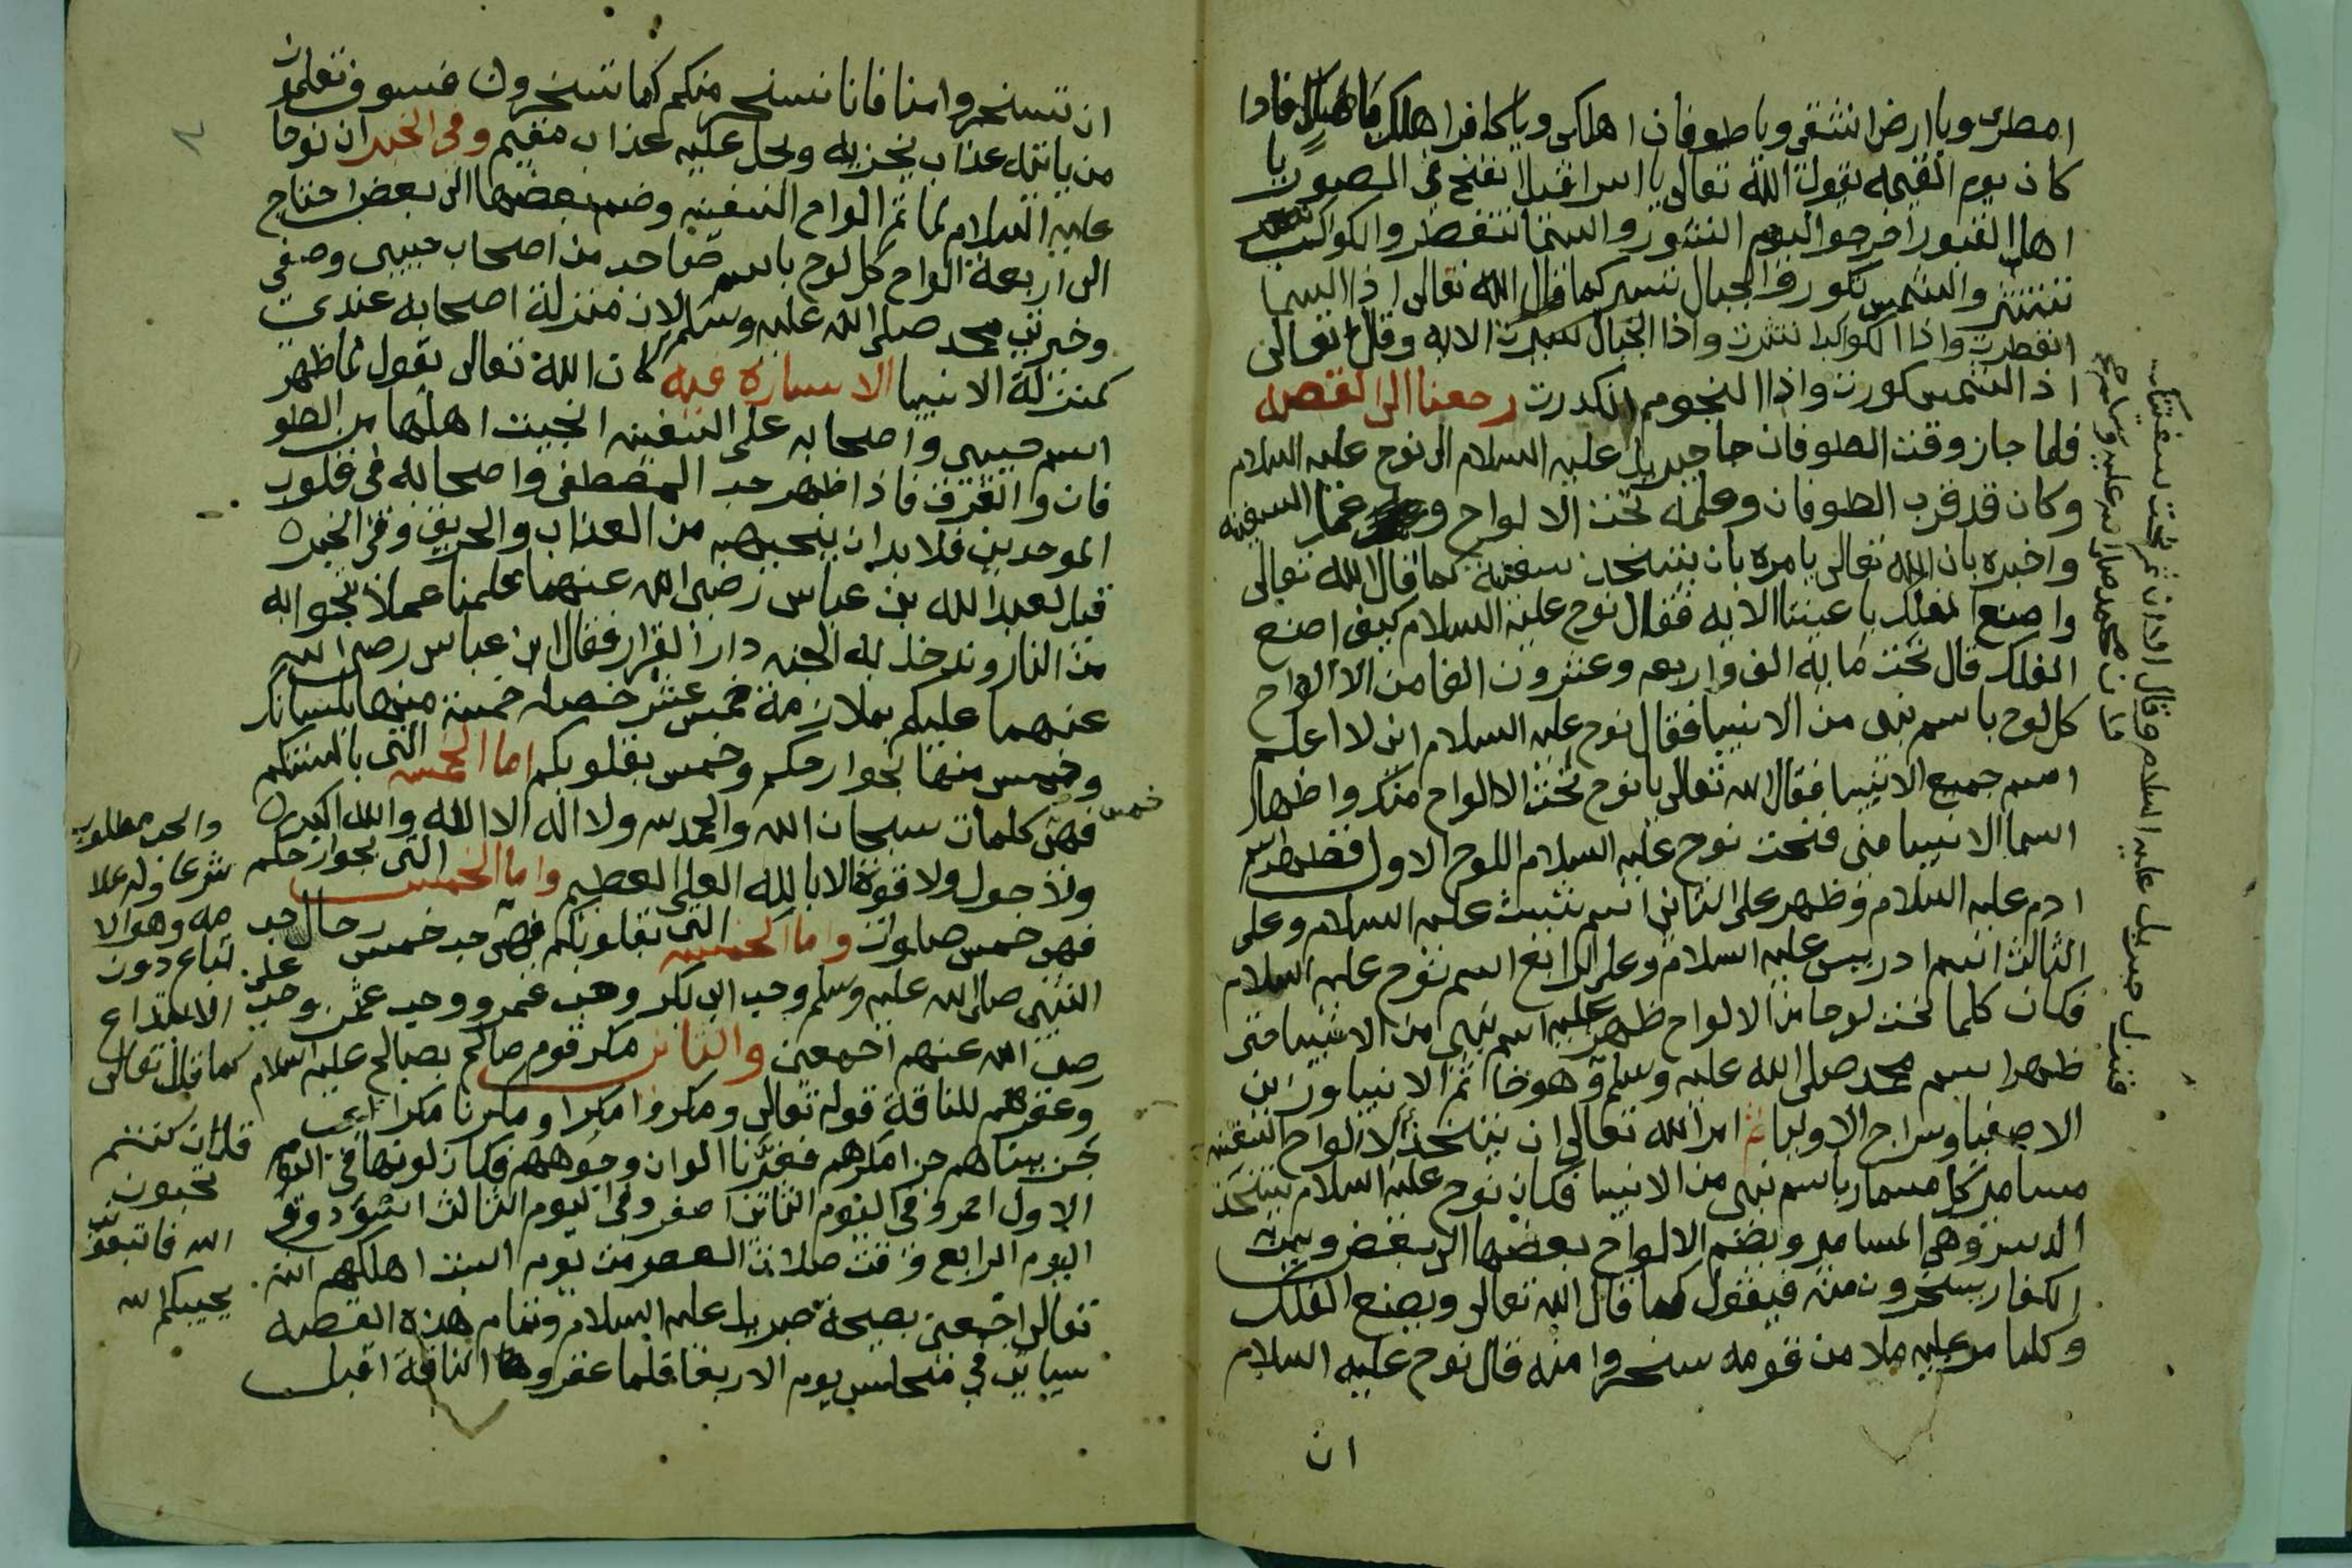 امطرى ويا ارض انشقى ويا طوفان اهلكى ويا كافر اهلك فاذا
كان يوم القيمه يقول الله تعالى يا اسرافيل انفخ فى الصور يا
اهل القبور اخرجوا اليوم النشور والسما تنفطر والكواكب
تنتثر والشمس تكور والجبال تسير كما قال الله تعالى اذا السما
انفطرت واذا الكواكب انتثرت واذا الجبال سيرت الايه وقال تعالى
اذ الشمس كورت واذا النجوم انكدرت رجعنا الى القصه
فلما جاز وقت الطوفان جا جبريل عليه السلام الى نوح عليه السلام
وكان قد قرب الطوفان وعلمه نحت الالواح وعمل السفينه
واخبره بان الله تعالى يامره بان يتخذ سفينة كما قال الله تعالى
واصنع الفلك باعيننا الايه فقال نوح عليه السلام كيف اصنع
الفلك قال نحت مايه الف واربعه وعشرون الفا من الالواح
كل لوح باسم نبى من الانبيا فقال نوح عليه السلام انى لا اعلم
اسم جميع الانبيا فقال الله تعالى يا نوح نحت الالواح منك واظهار
اسما الانبيا منى فنحت نوح عليه السلام اللوح الاول فظهر اسم
ادم عليه السلام وظهر على الثانى اسم شيث عليه السلام وعلى
الثالث اسم ادريس عليه السلام وعلى الرابع اسم نوح عليه السلام
فكان كلما نحت لوحا من الالواح ظهر عليه اسم نبى من الانبيا حتى
ظهر اسم محمد صلى الله عليه وسلم وهو خاتم الانبيا وزين
الاصفيا وسراج الاوليا ثم امر الله تعالى ان يتخذ لالواح السفينه
مسامير كل مسمار باسم نبى من الانبيا فكان نوح عليه السلام يتخذ
الدسر وهى المسامير ويضم الالواح بعضها الى بعض
الكفار يسخرون منه فيقول كما قال الله تعالى ويصنع الفلك
وكلما مر عليه ملا من قومه سخروا منه قال نوح عليه السلام
ان
فنزل جبريل عليه السلام وقال
محمد صلى الله عليه وسلم
ان تسخروا منا فانا نسخر منكم كما تسخرون فسوف تعلمون
من ياتيه عذاب يخزيه ويحل عليه عذاب مقيم وفى الخبر ان نوحا
عليه السلام لما تم الواح السفينه وضم بعضها الى بعض احتاج
الى اربعة الواح كل لوح باسم صاحب من اصحاب حبيبى وصفى
وخيرتى محمد صلى الله عليه وسلم لان منزلة اصحابه عندى
كمنزلة الانبيا الاشارة فيه كان الله تعالى يقول لما ظهر
اسم حبيبى واصحابه على السفينه انجيت اهلها من الطو
فان والغرق فاذا ظهر حب المصطفى واصحابه فى قلوب
الموحدين فلا بد ان ينجيهم من العذاب والحريق وفى الخبر
قيل لعبد الله بن عباس رضى الله عنهما علمنا عملا ننجوا به
من النار وندخل به الجنه دار القرار فقال ابن عباس رضى الله
عنهما عليكم بملازمة خمس عشر خصله خمسة منها بلسانكم
وخمس منها بجوارحكم وخمس بقلوبكم اما الخمس التى بالسنتكم
خمس
فهى كلمات سبحان الله والحمد لله ولا اله الا الله والله اكبر
ولا حول ولا قوة الا بالله العلى العظيم واما الخمس التى بجوارحكم
فهى خمس صلوات واما الخمس التى بقلوبكم فهى حب خمس رجال حب
النبى صلى الله عليه وسلم وحب ابى بكر وحب عمر ووحب عثمن وحب على
رضى الله عنهم اجمعين والثانى مكر قوم صالح بصالح عليه السلام
وعقرهم للناقة قوله تعالى ومكروا مكرا ومكرنا مكرا اى
نحن جزا مكرهم فغيرنا الوان وجوههم فكان لونها فى اليوم
الاول احمر وفى اليوم الثانى اصفر وفى اليوم الثالث اسود وفى
اليوم الرابع وقت صلاة العصر من يوم السبت اهلكهم الله
تعالى اجمعين بصيحة جبريل عليه السلام وتمام هذه القصه
سياتى فى مجلس يوم الاربعا فلما عقروا الناقة اقبل
والحب مطلوب
شرعا وله علا
مه وهو الا
تباع دون
الابتداع
كما قال تعالى
قل ان كنتم
تحبون
الله فاتبعونى
يحببكم الله